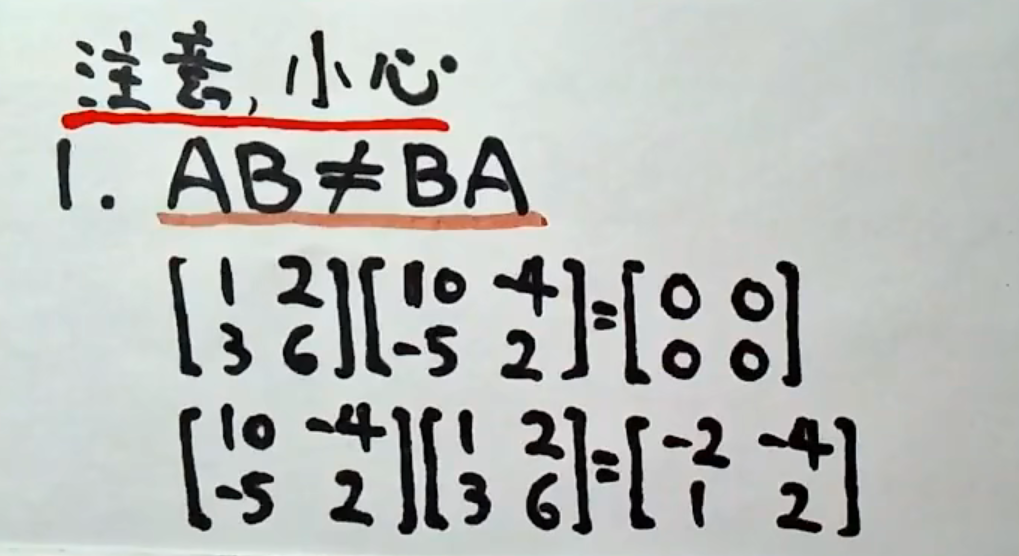 注意,小心
1. AB≠BA
[1 2; 3 6][10 -4; -5 2]=[0 0; 0 0]
[10 -4; -5 2][1 2; 3 6]=[-2 -4; 1 2]